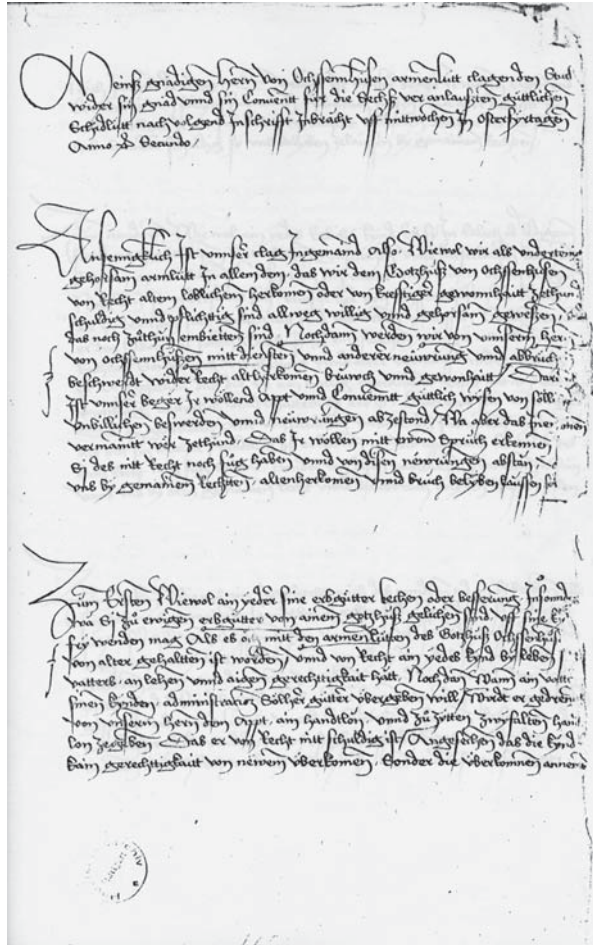 Meinß gnädigen hern von Ochssennhusen armenlutt clagenden Stuck
wider sin gnad unnd sin Convenntt für die Sechß ver anlaußten güttlichen
Schidlutt nachvolgend Inschrifft Inbracht uff mittwochen In osterfyrtagen
Anno Secundo /
Anfenngklich Ist unnser clag Ingemaind Also. Wiewol wir als undertenig
gehorsam armlutt In allem dem, das wir dem Gotzhuß von Ochssenhusen
von Recht altem loblichem herkomen oder von krefftiger gewonnhaitt zethund
schuldig unnd pflichtig sind allweg willig unnd gehorsam geweßen /
das noch zuthun embietten sind Nochdann werden wir von unnserm hern
von Ochssennhußen mitt diensten unnd anderer neuwrung unnd abbruch
beschwerdt wider Recht altherkomen bruoch unnd gewonhaitt /
Ist unnser beger Ir wöllend Appt unnd Convenntt gütlich wysen von
unbillichen beswerden unnd neuwrungen abzestond / Wa aber das Inen
vermaintt wer zethund / Das Ir wöllen mitt ewrm Spruch erkennen
Si des nitt Recht noch fug haben unnd von disen newrungen abstan /
uns by gemainem Rechten / altemherkomen unnd bruch belyben laussen
Zum Ersten Wiewol ain yeder sine erbgütter lechen oder besserung.
wa Si zu ewigen erbgütter von ainem gotzhuß gelichen sind, uff sine
fry wenden mag Als es och mitt den armenlüten des Gotzhuß Ochssenhuß
von alter gehalten ist worden / unnd von Recht ain yedes kynd by leben
vatters an lehen unnd aigen gerechtigkaitt hätt. Nochdan Wann ain vatter
sinen kynden administracion Sölher gütter übergeben will / Wirdt er gedrengt
von unserm hern dem Appt ain handtlon unnd zu zytten zwyfalten
lon zegeben Das er von Recht nitt schuldig ist / Angesehen das die kynd
kain gerechtigkaitt von newem überkomen. Sonder die überkomnen